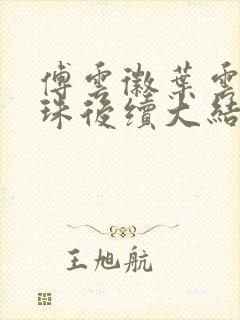 傅雲徽葉雲
珠後續大結
王旭航